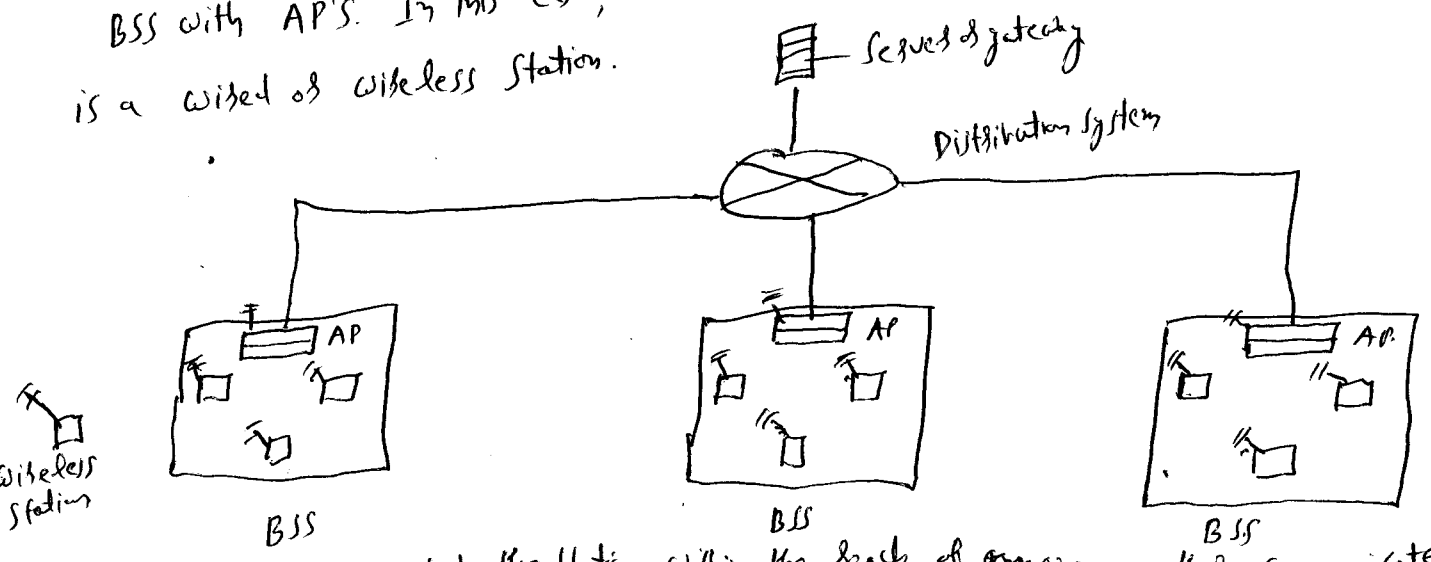 BSS with AP'S. In this
is a wired or wireless station.
Server or gateway
Distribution system
AP
AP
AP.
wireless
station
BSS
BSS
BSS
within the